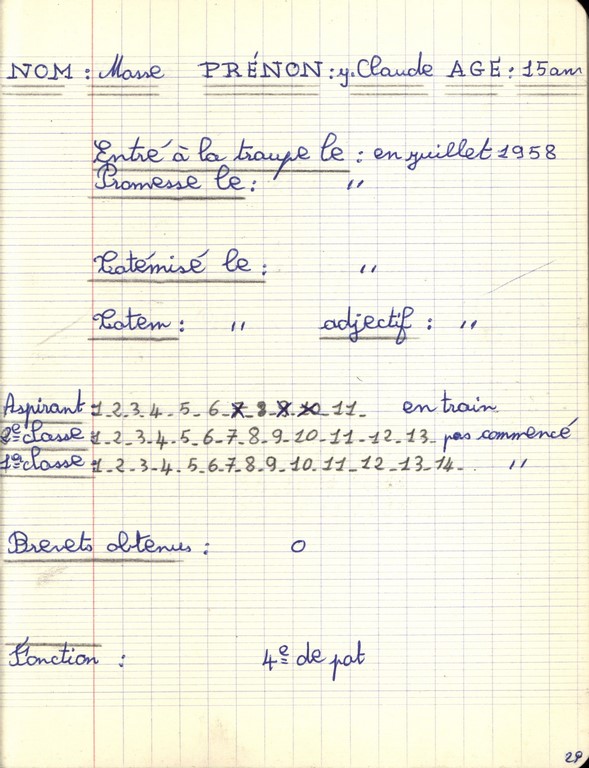 NOM : Masse PRÉNON : y.Claude AGE : 15 ans
Entré à la troupe le : en juillet 1958
Promesse le : "
Totémisé le : "
Totem : " adjectif : "
Aspirant 1_2_3_4_5_6_7_8_9_10_11_ en train
2e classe 1_2_3_4_5_6_7_8_9_10_11_12_13_ pas commencé
1e classe 1_2_3_4_5_6_7_8_9_10_11_12_13_14_ "
Brevets obtenus : 0
Fonction : 4e de pat
29